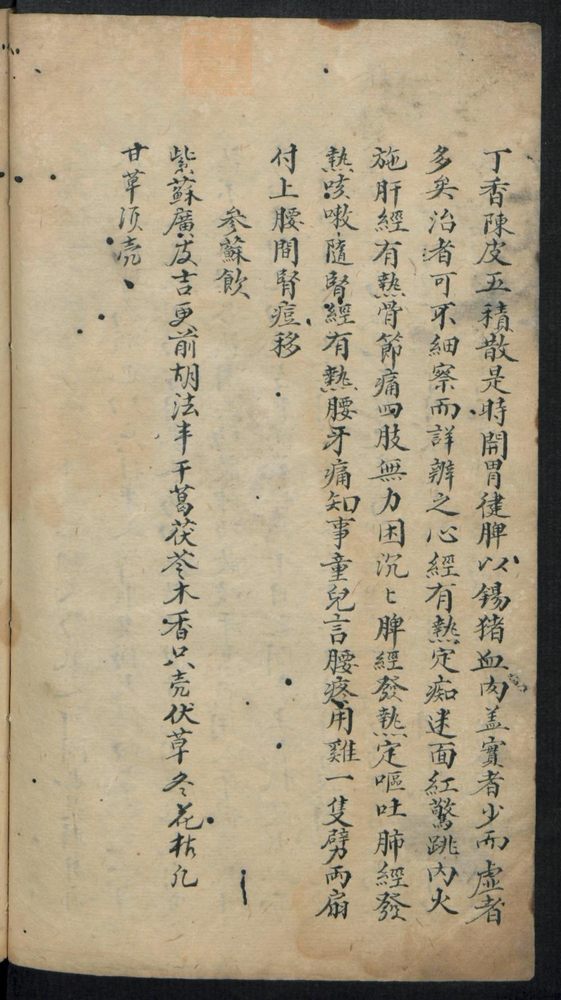 丁香陳皮五積散是時開胃健脾以錫猪血肉盖實者少而虛者
多矣治者可不細察而詳辨之心經有熱定痴迷面紅驚跳内火
施肝經有熱骨節痛四肢無力困沉〻脾經發熱定嘔吐肺經發
熱咳嗽隨腎經有熱腰牙痛知事童兒言腰疼用雞一隻劈両扇
付上腰間腎痘移
參蘇飲
紫蘇廣皮吉更前胡法半干葛茯苓木香只壳伏草冬花枯凡
甘草須壳